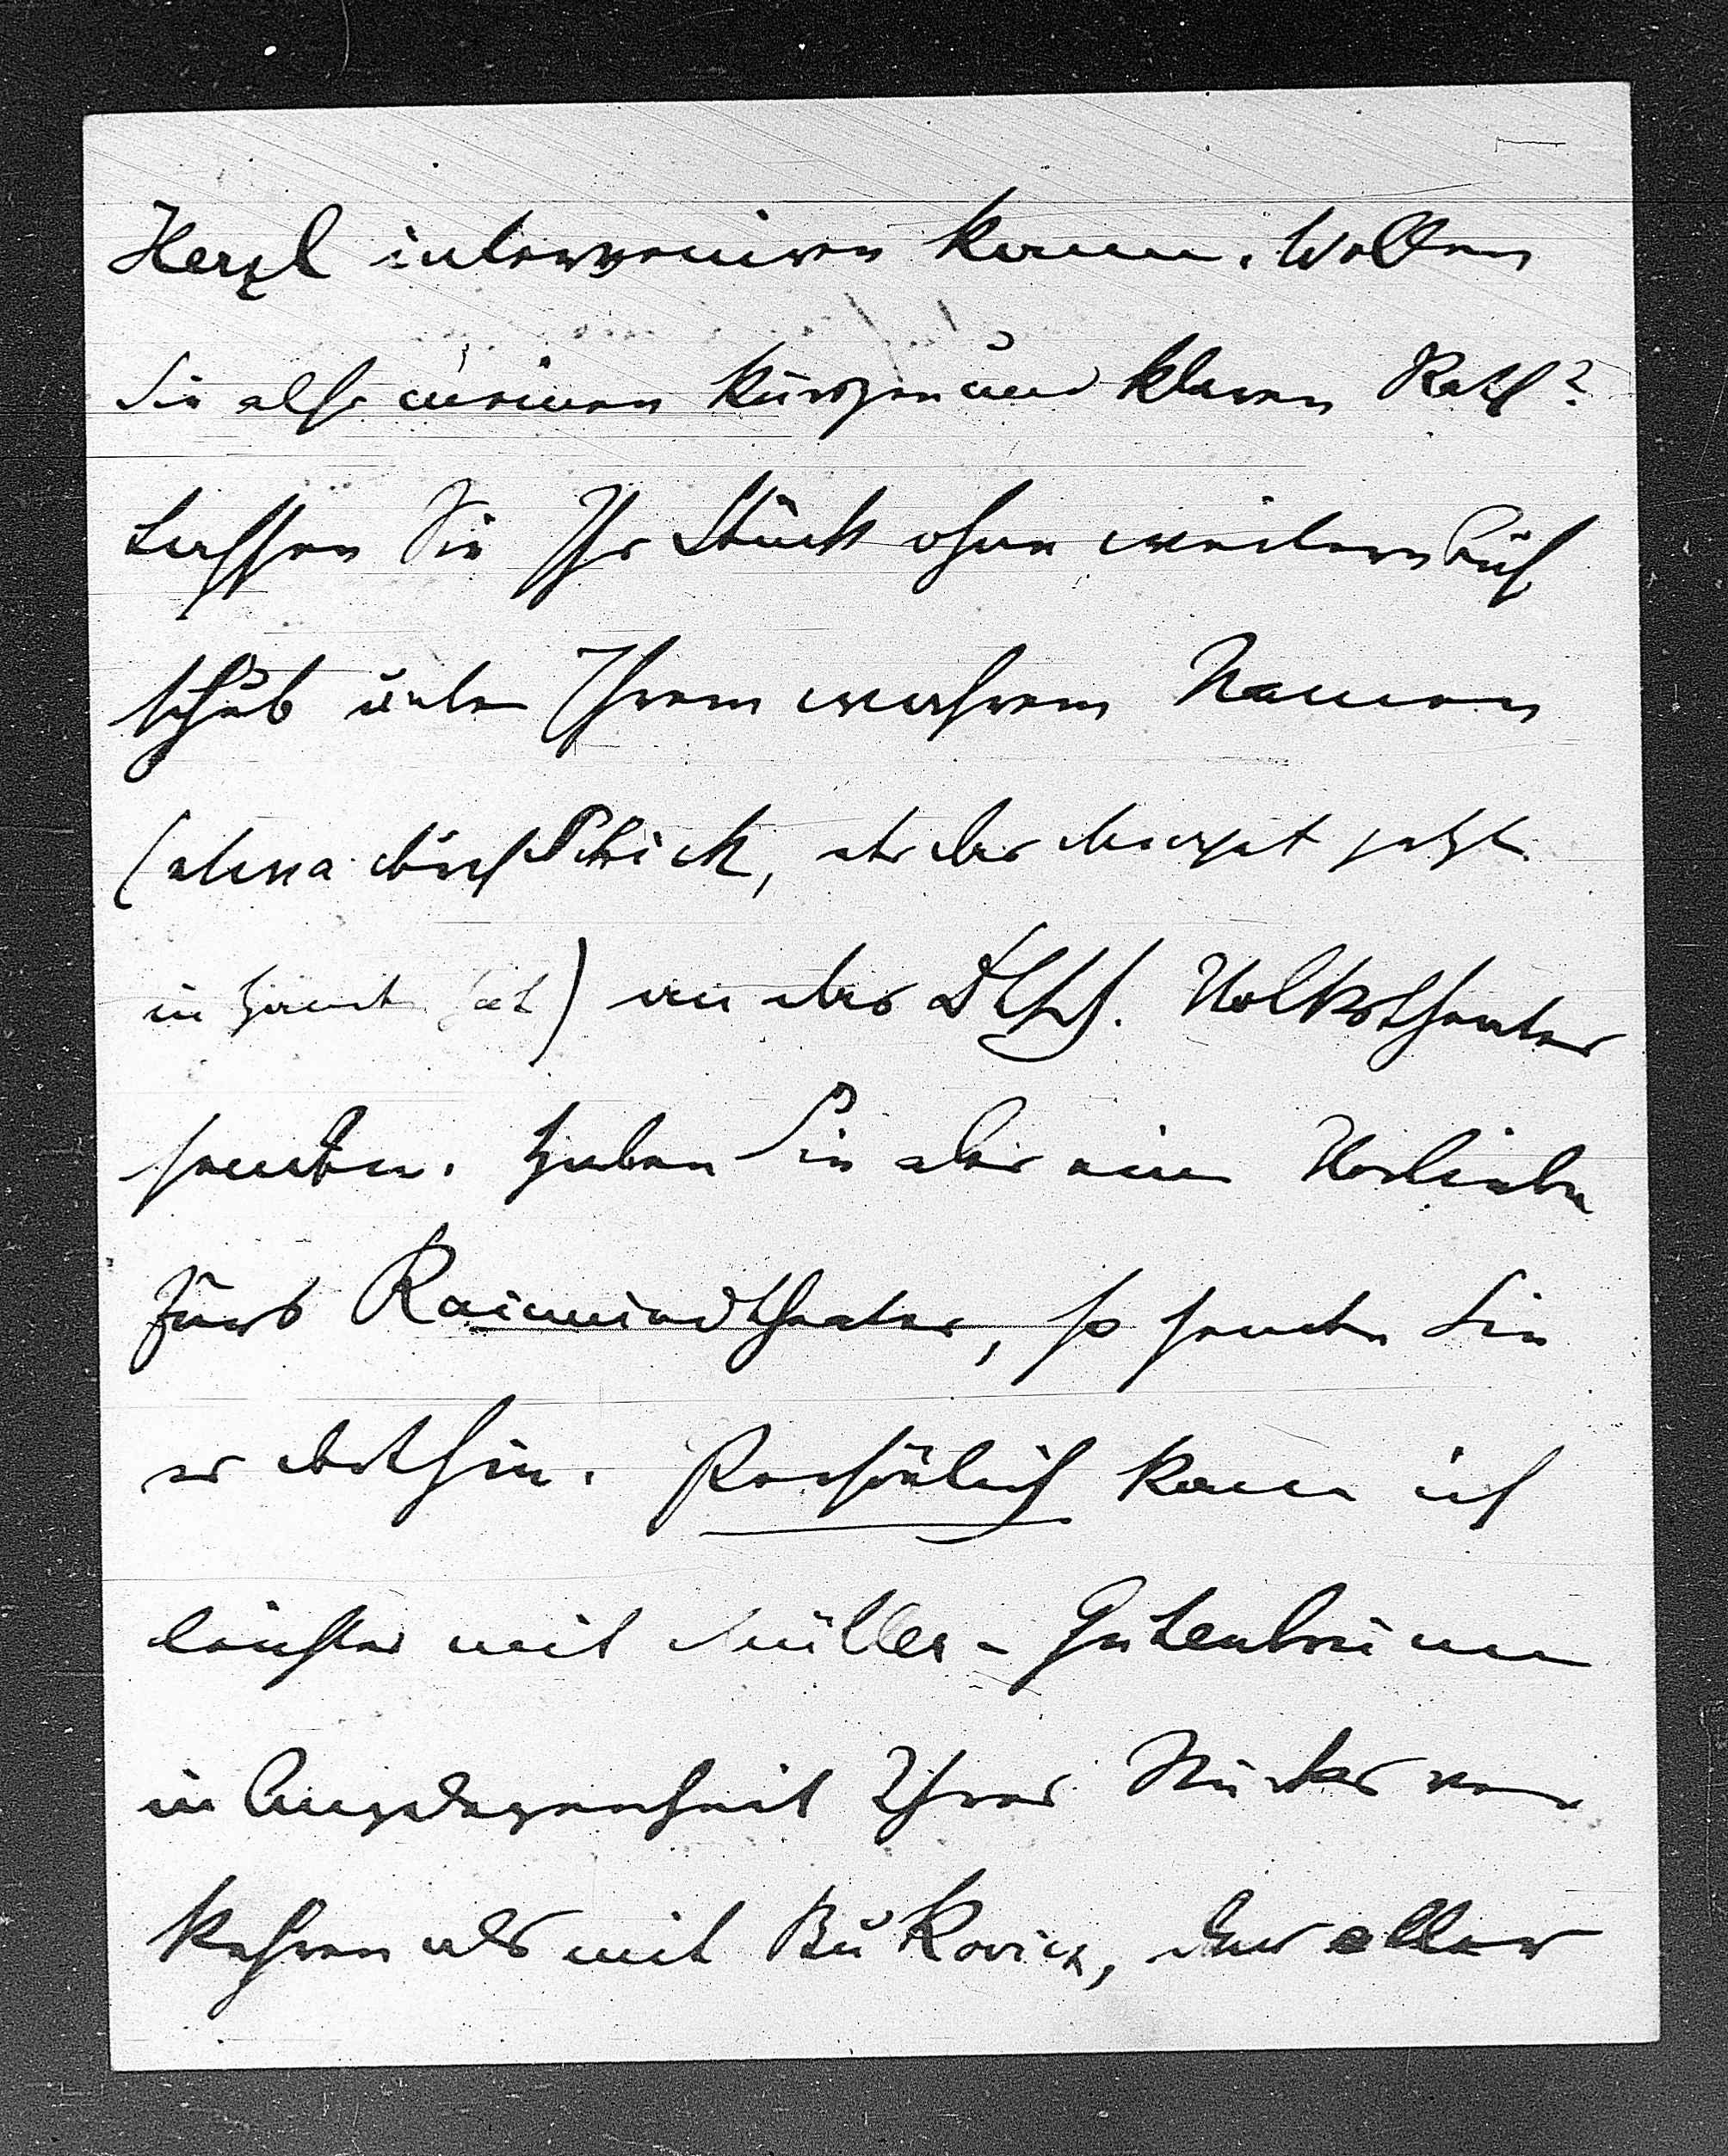 Herzl interveniren kann. Wollen
Sie also meinen kurzen und klaren Rath?
Lassen Sie Ihr Stück ohne weitern Auf
schub unter Ihrem wahrem Namen
(etwa durch Schick, der das                jetzt
in Händen hat) an das Dtsch. Volkstheater
senden. Haben Sie aber eine Vorliebe
fürs Raimundtheater, so senden Sie
es dorthin. Persönlich kann ich
leichter mit Müller-Gutenbrunn
in Angelegenheit Ihres Stückes ver
kehren als mit Bukovics, der aller